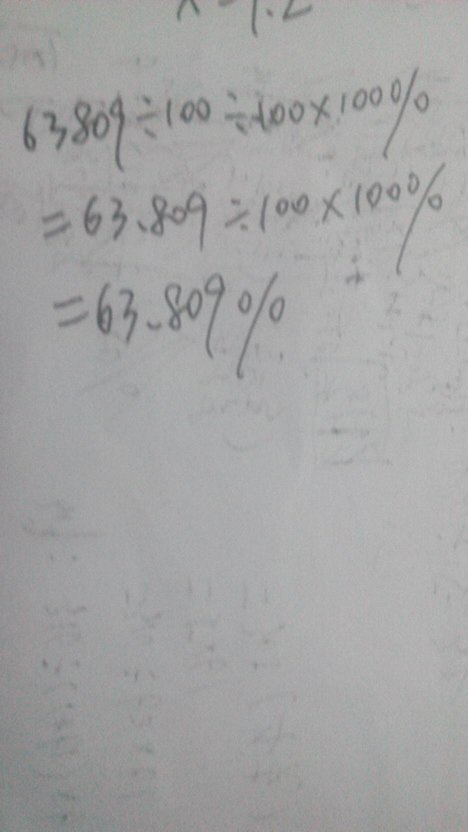 x=1.2
63809÷100÷100×100%
=63.809÷100×100%
=63.809%